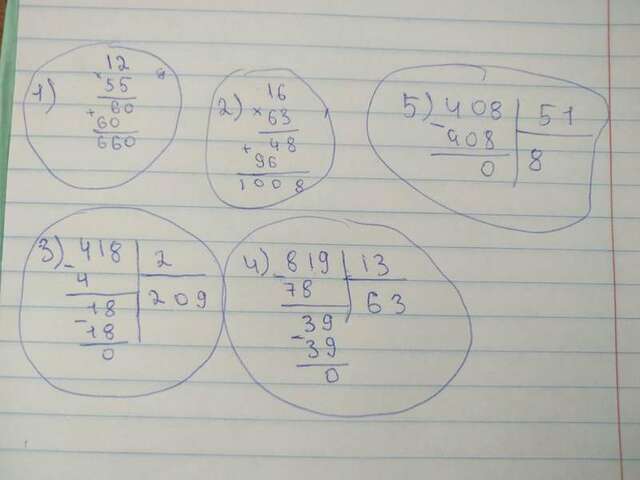 1) 12
× 55
60
+ 60
660
2) 16
× 63
+ 48
96
1008
5) 408 51
- 408 8
0
3) 418 2
- 4 209
18
- 18
0
4) 819 13
- 78 63
39
- 39
0